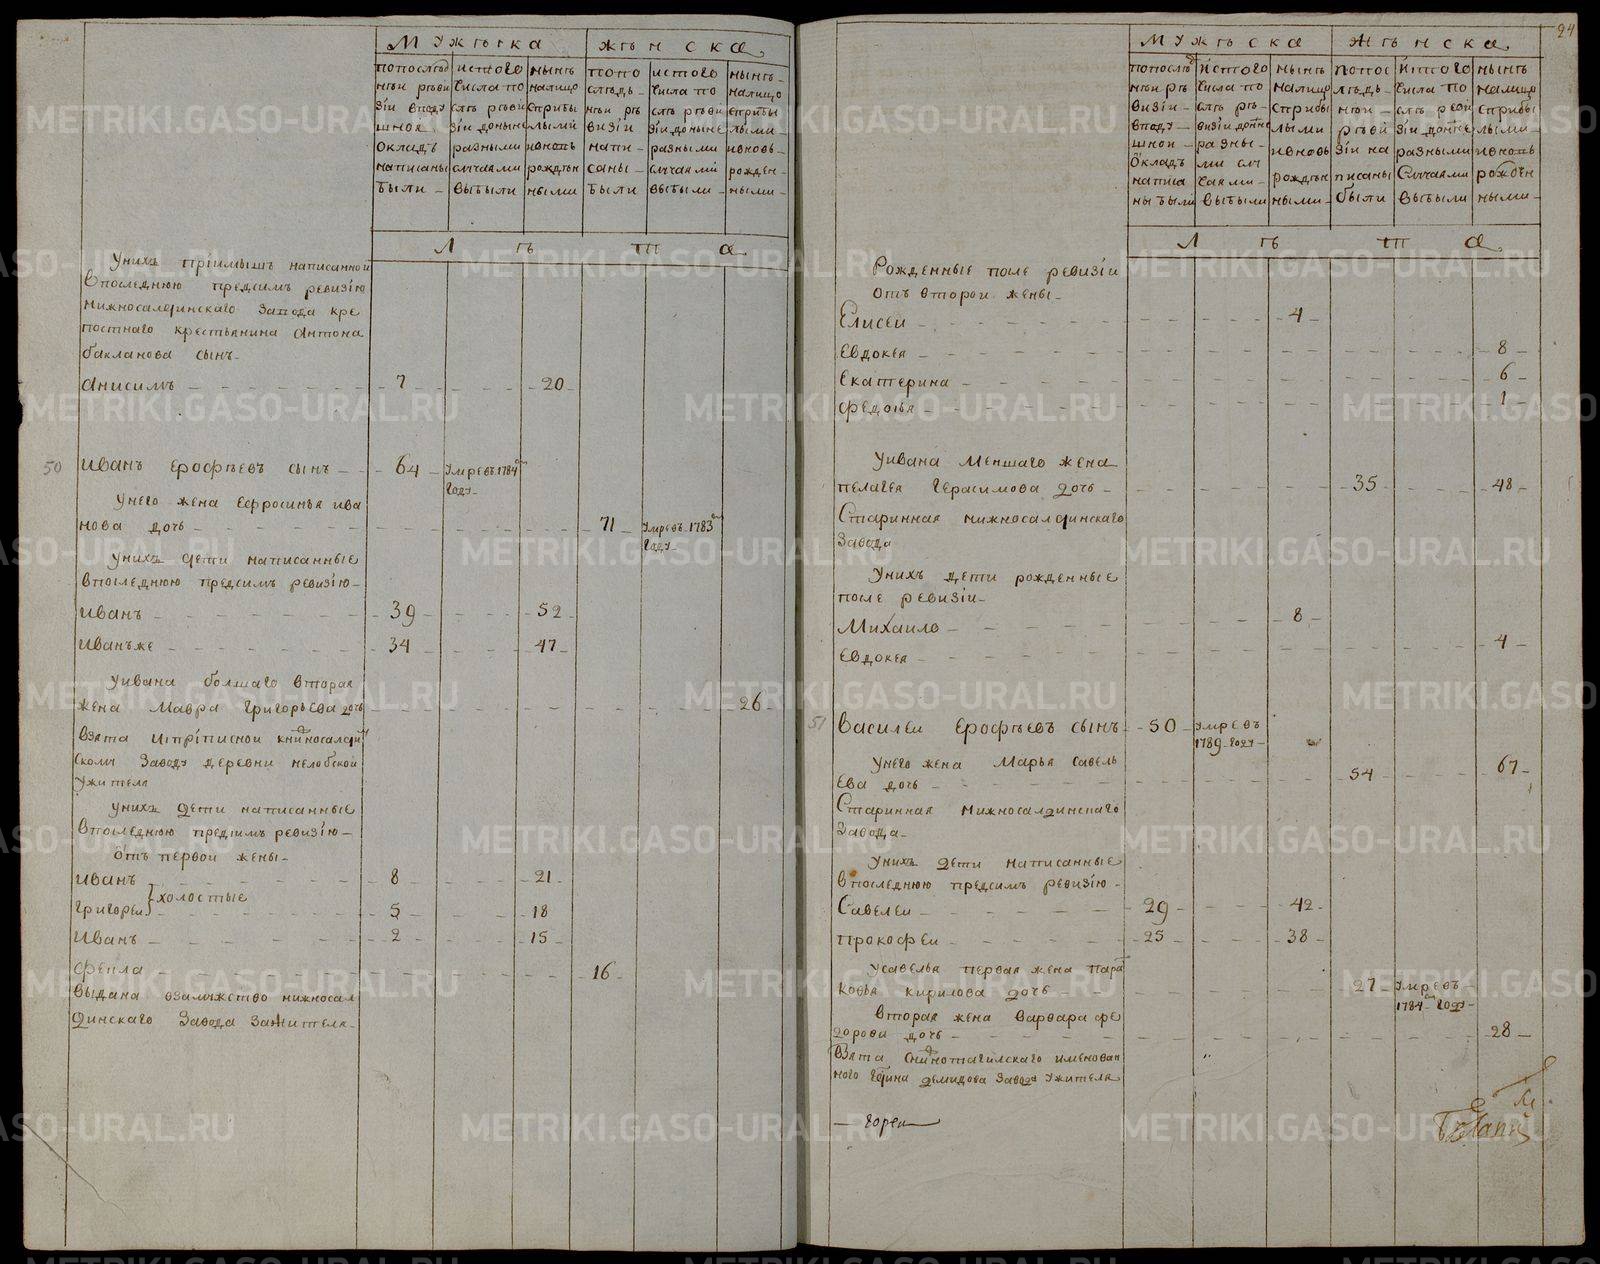 Мужеска женска
попослѣд нѣи ревизіи вподушнои окладъ написаны были
истого числа по слѣ ревизіи донынѣ разными случаями выбыли
нынѣ налицо сприбылыми ивновь рожденными
попослѣдь нѣи ревизіи написаны были
истого числа по слѣ ревизіи донынѣ разными случаями выбыли
нынѣ налицо сприбылыми ивновь рожденными
Лѣта
Унихъ пріимышъ написаннои
впоследнюю предсимъ ревизію
нижносалдинскаго Завода кре
постнаго крестьянина Антона
бакланова сынъ
Анисимъ 7 20
50 Иванъ Ерофѣевъ сынъ 64 умрѣвъ 1784 году
Унего жена Ефросинья ива
нова дочь 71 умрѣвъ 1783 году
Унихъ дети написанные
впоследнюю предсимъ ревизію
Иванъ 39 52
Иванъже 34 47
Уивана болшаго вторая
жена Мавра григорьева дочь 26
взята
скому Заводу деревни
Ужителя
Унихъ дети написанные
впоследнюю предсимъ ревизію
отъ первои жены
Иванъ 8 21
холостые
григореи 5 18
Иванъ 2 15
фекла 16
выдана взамужство нижносал
динскаго Завода Зажителя
24
Мужеска Женска
попослѣд нѣи ревизіи вподушнои окладъ написаны были
истого числа по слѣ ревизіи донынѣ разными случаями выбыли
нынѣ налицо сприбылыми ивновь рожденными
попослѣдь нѣи ревизіи написаны были
истого числа по слѣ ревизіи донынѣ разными случаями выбыли
нынѣ налицо сприбылыми ивновь рожденными
Лѣта
Рожденные после ревизіи
отъ второи жены
Елисеи 4
Евдокея 8
Екатерина 6
федосья 1
Уивана Меншаго жена
пелагея герасимова дочь 35 48
Старинная нижносалдинскаго
Завода
Унихъ дети рожденные
после ревизіи
Михаило 8
Евдокея 4
51 Василеи Ерофѣевъ сынъ 50 умрѣвъ 1789 году
Унего жена Марья Савель
ева дочь 54 67
Старинная Нижносалдинскаго
Завода
Унихъ дети написанные
впоследнюю предсимъ ревизію
Савелеи 29 42
прокофеи 25 38
Усавелья первая жена пара
ковья кирилова дочь 27 умрѣвъ 1784 году
вторая жена варвара фе
дорова дочь 28
Взята снижнотагилскаго именован
ного гдина демидова Завода Ужителя
METRIKI.GASO-URAL.RU